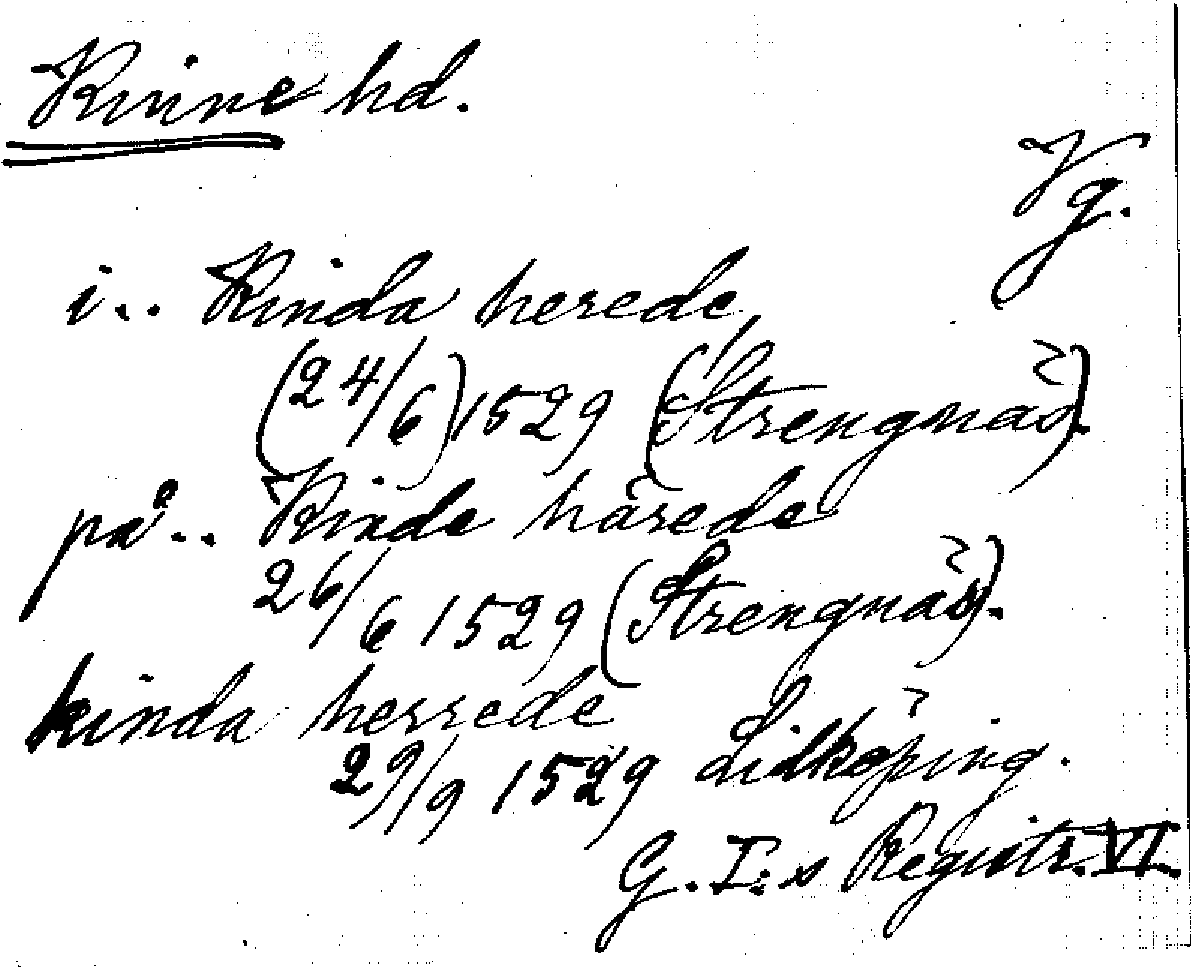 Kinne hd.
Vg.
i.. Kinda herede
(24/6) 1529 (Strengnäs).
på.. Kinde härede
26/6 1529 (Strengnäs).
kinda herrede
29/9 1529 Lidköping.
G. I:s Registr. VI.